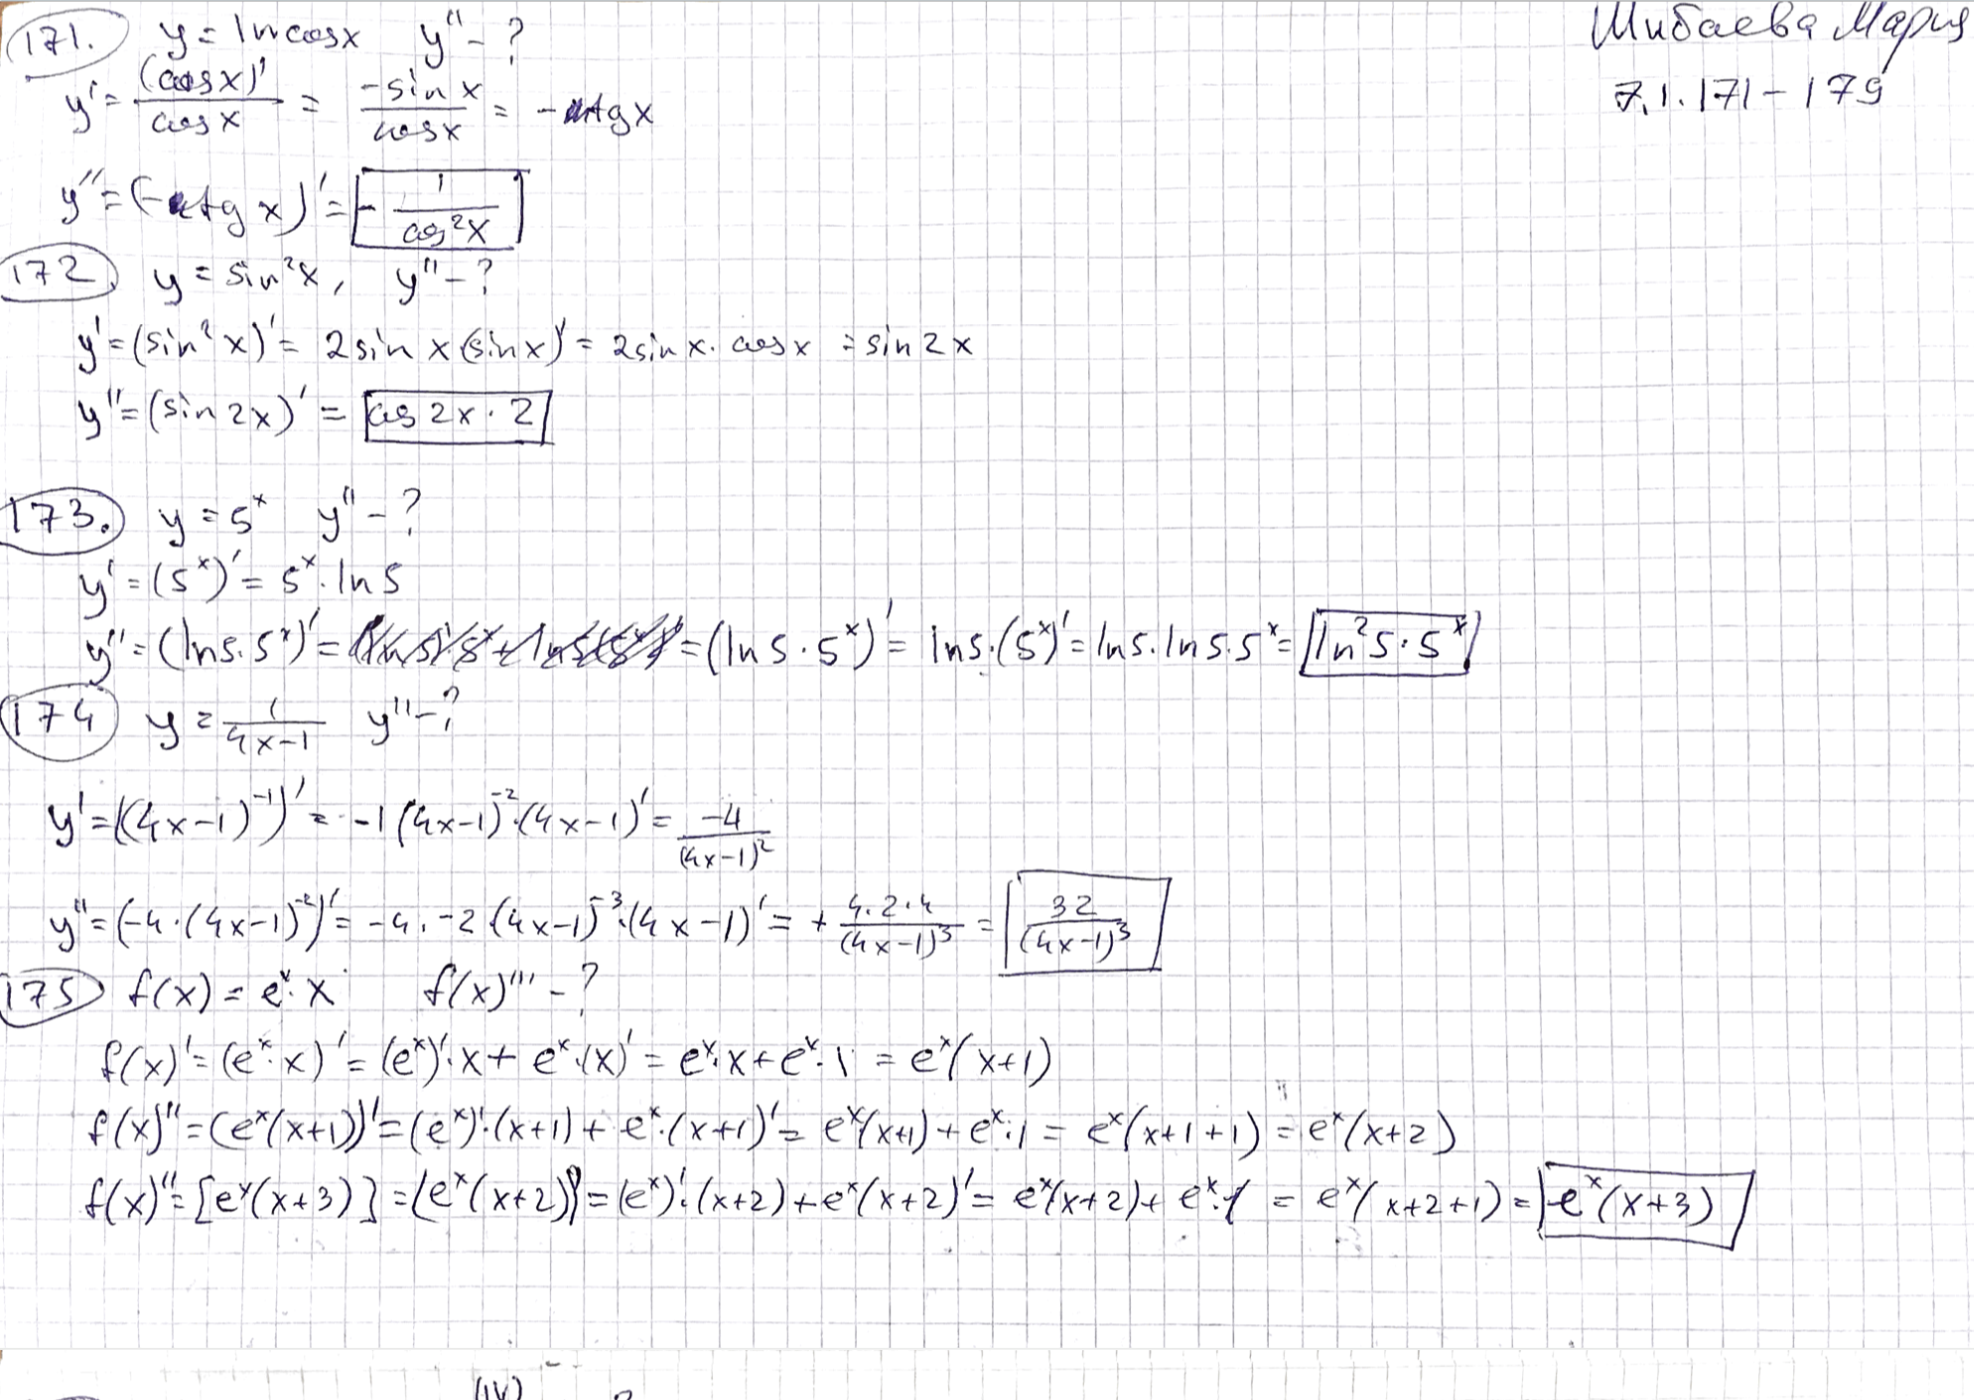 Шибаева Мария
7.1.171-179
171. y = ln cos x y'' - ?
y' = (cos x)' / cos x = -sin x / cos x = -tg x
y'' = (-tg x)' = - 1 / cos²x
172. y = sin²x, y'' - ?
y' = (sin²x)' = 2 sin x (sin x)' = 2 sin x · cos x = sin 2x
y'' = (sin 2x)' = cos 2x · 2
173. y = 5ˣ y'' - ?
y' = (5ˣ)' = 5ˣ · ln 5
y'' = (ln 5 · 5ˣ)' = = (ln 5 · 5ˣ)' = ln 5 · (5ˣ)' = ln 5 · ln 5 · 5ˣ = ln²5 · 5ˣ
174 y = 1 / 4x-1 y'' - ?
y' = ((4x-1)⁻¹)' = -1 (4x-1)⁻² · (4x-1)' = -4 / (4x-1)²
y'' = (-4 · (4x-1)⁻²)' = -4 · -2 (4x-1)⁻³ · (4x-1)' = + 4·2·4 / (4x-1)³ = 32 / (4x-1)³
175 f(x) = eˣ · x f(x)''' - ?
f(x)' = (eˣ · x)' = (eˣ)' · x + eˣ · (x)' = eˣ · x + eˣ · 1 = eˣ(x+1)
f(x)'' = (eˣ(x+1))' = (eˣ)' · (x+1) + eˣ · (x+1)' = eˣ(x+1) + eˣ · 1 = eˣ(x+1+1) = eˣ(x+2)
f(x)''' = [eˣ(x+3)] = (eˣ(x+2))' = (eˣ)' · (x+2) + eˣ(x+2)' = eˣ(x+2) + eˣ · 1 = eˣ(x+2+1) = eˣ(x+3)
(IV)